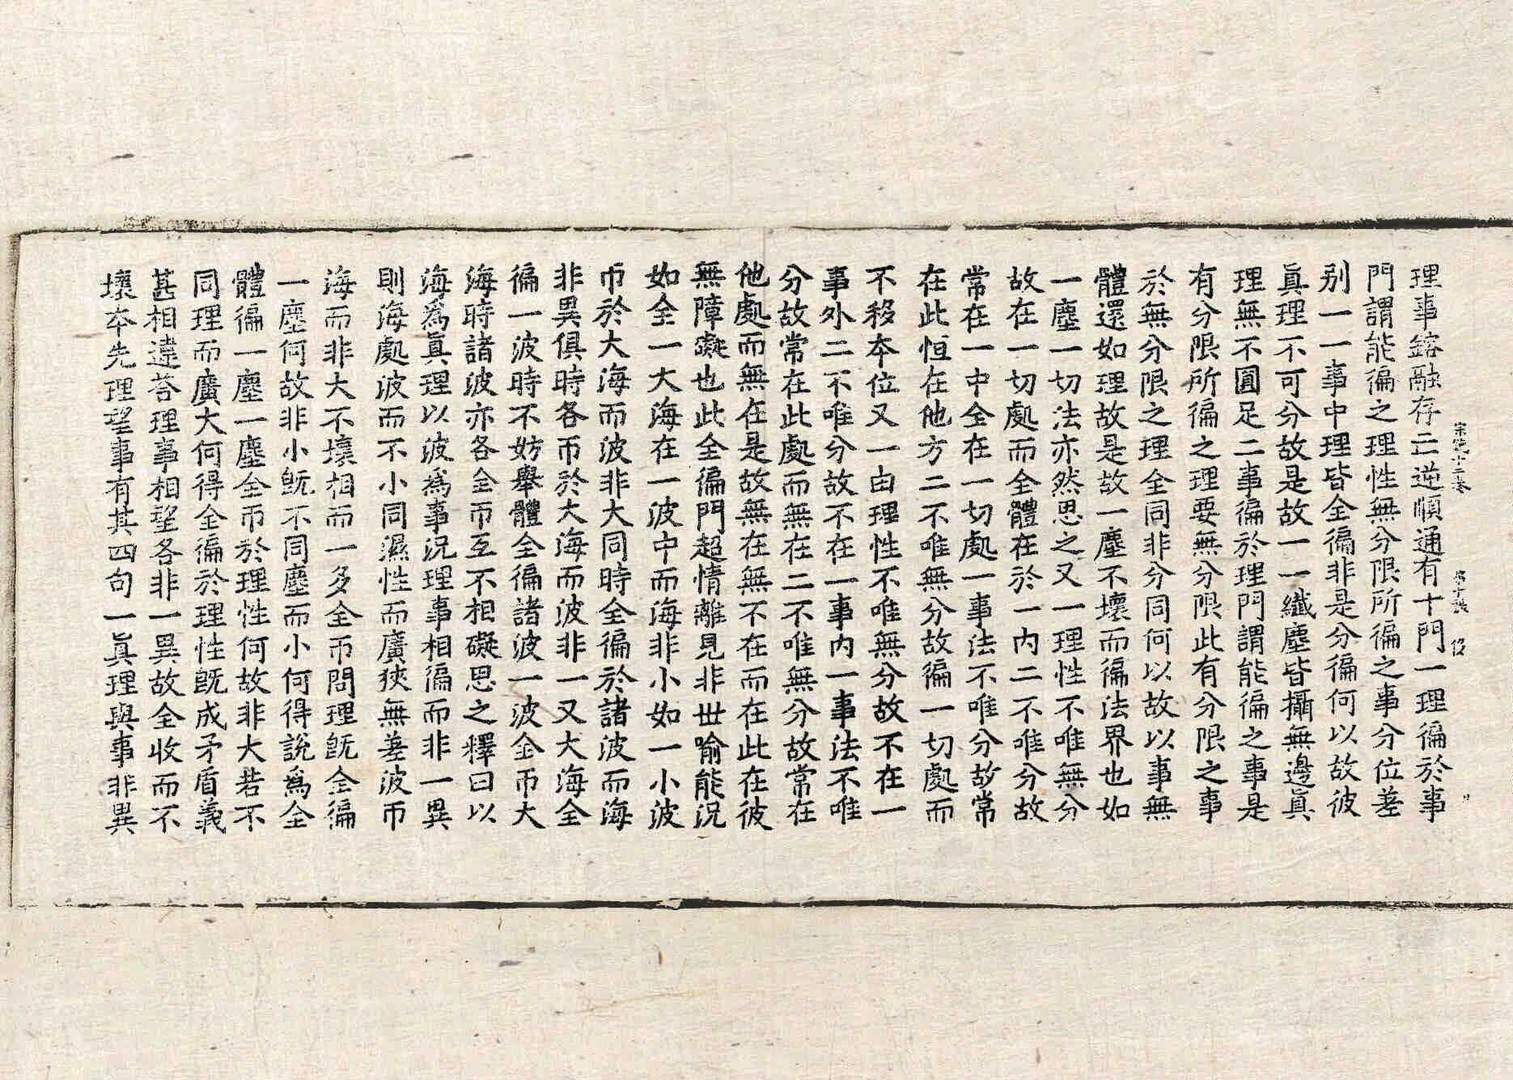 宗鏡十三卷 第十張
理事鎔融存亡逆順通有十門一理徧於事
門謂能徧之理性無分限所徧之事分位差
别一一事中理皆全徧非是分徧何以故彼
眞理不可分故是故一一纖塵皆攝無邊眞
理無不圓足二事徧於理門謂能徧之事是
有分限所徧之理要無分限此有分限之事
於無分限之理全同非分同何以故以事無
體還如理故是故一塵不壞而徧法界也如
一塵一切法亦然思之又一理性不唯無分
故在一切處而全體在於一內二不唯分故
常在一中全在一切處一事法不唯分故常
在此恒在他方二不唯無分故徧一切處而
不移本位又一由理性不唯無分故不在一
事外二不唯分故不在一事內一事法不唯
分故常在此處而無在二不唯無分故常在
他處而無在是故無在無不在而在此在彼
無障礙也此全徧門超情離見非世喻能況
如全一大海在一波中而海非小如一小波
帀於大海而波非大同時全徧於諸波而海
非異俱時各帀於大海而波非一又大海全
徧一波時不妨舉體全徧諸波一波全帀大
海時諸波亦各全帀互不相礙思之釋曰以
海爲眞理以波爲事況理事相徧而非一異
則海處波而不小同濕性而廣狹無差波帀
海而非大不壞相而一多全帀問理旣全徧
一塵何故非小旣不同塵而小何得說爲全
體徧一塵一塵全帀於理性何故非大若不
同理而廣大何得全徧於理性旣成矛盾義
甚相違荅理事相望各非一異故全收而不
壞本先理望事有其四句一眞理與事非異